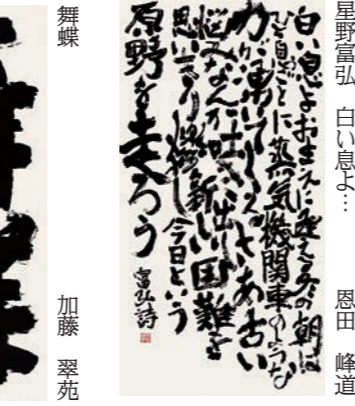 星野富弘 白い息よ… 恩田 峰道
白い息よおまえに逢える冬の朝は
ひと息ごとに蒸気機関車のような
力が湧いてくるさあ古い
悩みなんか吐き出し新しい困難を
思いきり 今日という
原野を走ろう 富弘詩
舞蝶 加藤 翠苑